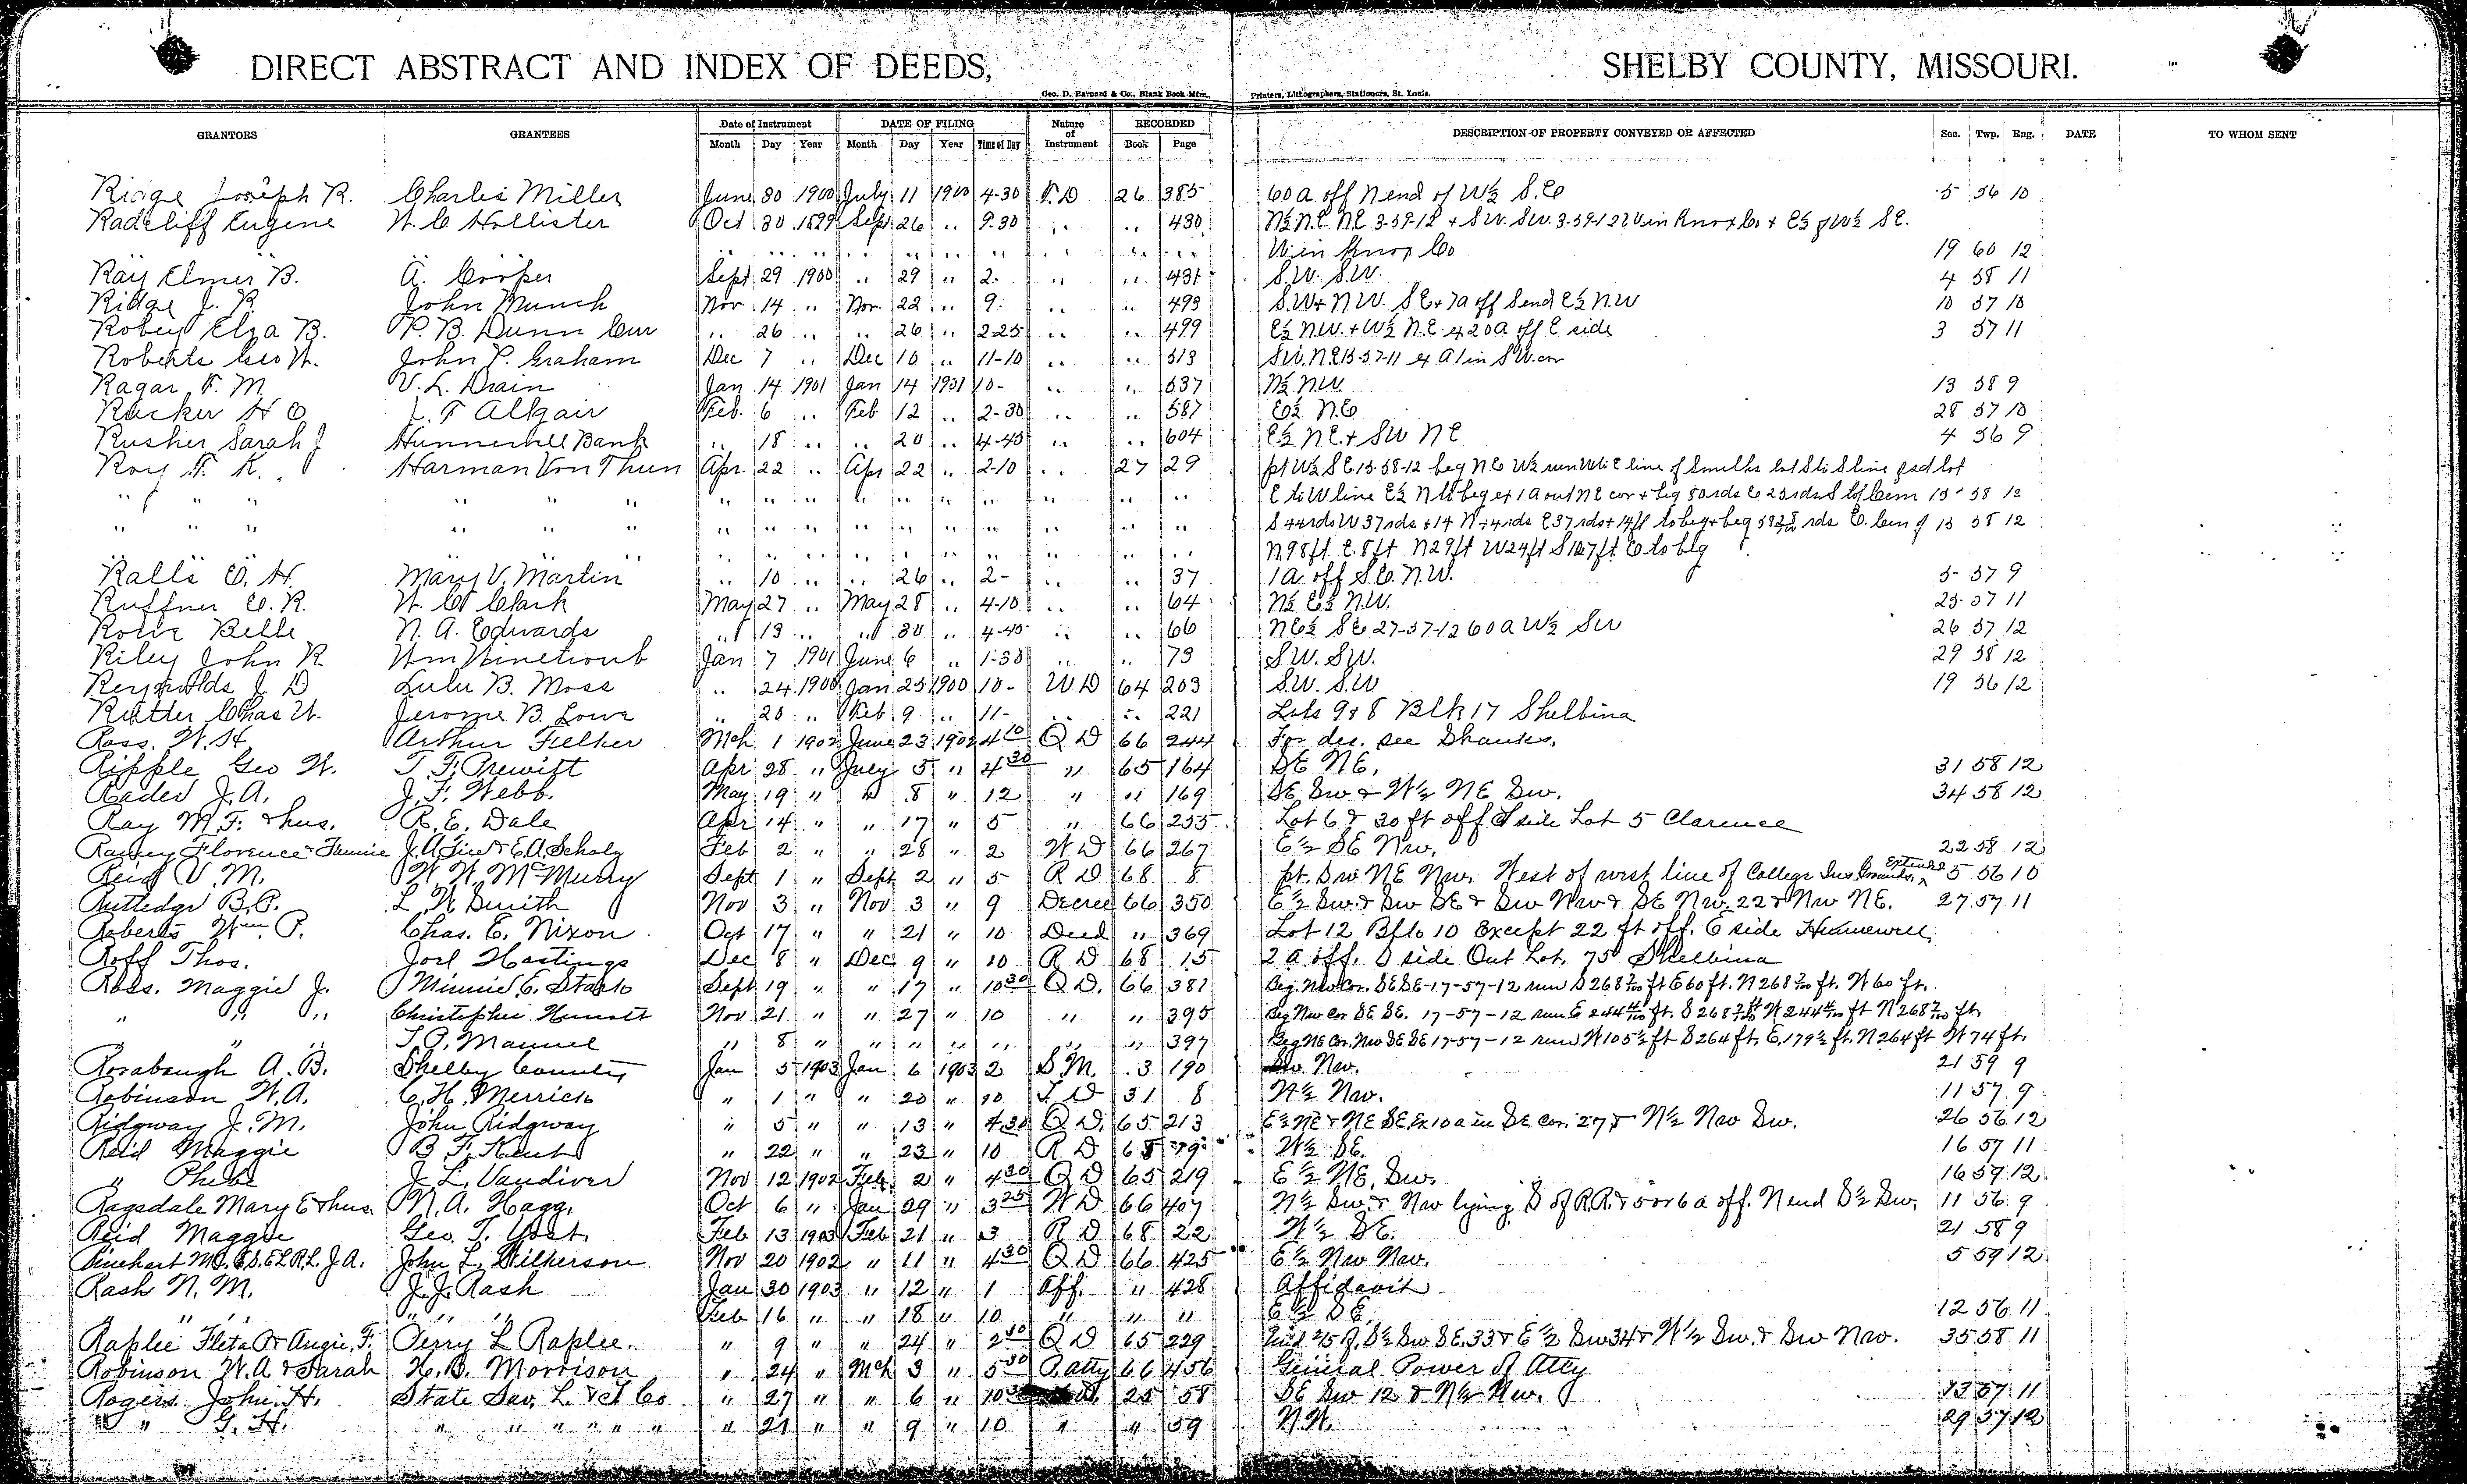 DIRECT ABSTRACT AND INDEX OF DEEDS, SHELBY COUNTY, MISSOURI.
Geo. D. Barnard & Co., Blank Book Mfrs., Printers, Lithographers, Stationers, St. Louis.
GRANTORS GRANTEES Date of Instrument DATE OF FILING Nature of Instrument RECORDED DESCRIPTION OF PROPERTY CONVEYED OR AFFECTED Sec. Twp. Rng. DATE TO WHOM SENT
Month Day Year Month Day Year Time of Day Book Page
Ridge Joseph R. Charles Miller June 30 1900 July 11 1900 4-30 T. D 26 385 60 a off N end of W½ S.E 5 56 10
Radcliff Eugene W. C. Hollister Oct 30 1899 Sept 26 " 9-30 " " 430 N½ N.E. NE 3-59-12 + SW. SW. 3-59-12 in Knox Co + E½ of W½ SE.
" " " " " " " " " " " in Knox Co 19 60 12
Ray Elmer B. A. Cooper Sept 29 1900 " 29 " 2- " " 431 S.W. S.W. 4 58 11
Ridge J. R. John Munch Nov 14 " Nov 22 " 9- " " 493 SW + N.W. SE + 7a off S end E½ N.W 10 57 10
Robey Elza B. P. B. Dunn Cur " 26 " " 26 " 2-25 " " 499 E½ N.W. + W½ N.E. ex 20a off E side 3 57 11
Roberts Geo W. John P. Graham Dec 7 " Dec 10 " 11-10 " " 513 SW. NE 15-57-11 ex A 1 in SW. cor
Ragar F. M. V. L. Drain Jan 14 1901 Jan 14 1901 10- " " 537 N½ N.W. 13 58 9
Rucker H O J. T Algair Feb. 6 " Feb 12 " 2-30 " " 587 E½ N.E 28 57 10
Rusher Sarah J Hunnewell Bank " 18 " " 20 " 4-40 " " 604 E½ NE. + SW NE 4 56 9
Roy F. K. Harman Von Thun Apr. 22 " Apr 22 " 2-10 " 27 29 pt W½ SE 15-58-12 beg NE W½ run W to E line of Smiths lot S to S line sd lot
" " " " " " " " " " " " " " " E to W line E½ N to beg ex 1 a out NE cor + beg 80 rds E 25 rds S of Cem 15 58 12
" " " " " " " " " " " " " " " S 44 rds W 37 rds + 14 N 44 rds E 37 rds + 14 ft to beg + beg rds E. cen of 15 58 12
" " " " " " " " " " " " " " " N. 98 ft E. 8 ft N 29 ft W 24 ft S 127 ft. E to beg
Ralls E. H. Mary V. Martin " 10 " " 26 " 2- " " 37 1 a off S.E. N.W. 5 57 9
Ruffner E. R. W. C Clark May 27 " May 28 " 4-10 " " 64 N½ E½ N.W. 25 57 11
Rowe Belle N. A. Edwards " 13 " " 30 " 4-45 " " 66 NE½ SE 27-57-12 60 a W½ SW 26 57 12
Riley John R Wm Winetroub Jan 7 1901 June 6 " 1-30 " " 73 S.W. S.W. 29 58 12
Reynolds J D Lulu B. Moss " 24 1900 Jan 25 1900 10- W.D 64 203 S.W. S.W 19 56 12
Rutter Chas W. Jerome B. Lowe " 20 " Feb 9 " 11- " " 221 Lots 9 & 8 Blk 17 Shelbina
Ross. W. H Arthur Fielker Mch 1 1902 June 23 1902 4 10 Q D 66 244 For des. see Shanks.
Ripple Geo W. T. F. Prewitt Apr 28 " July 5 " 4 30 " 65 164 SE NE. 31 58 12
Rader J. A. J. F. Webb. May 19 " " 8 " 12 " " 169 SE Sw & W½ NE Sw. 34 58 12
Ray M. F. & hus. R. E. Dale Apr 14 " " 17 " 5 " 66 255 Lot 6 & 20 ft off S side Lot 5 Clarence
Ramey Florence & Fannie J. A. Tice & E. A. Scholz Feb 2 " " 28 " 2 W D 66 267 E½ SE Nw. 22 58 12
Reid V. M. W. W. McMurry Sept 1 " Sept 2 " 5 R D 68 8 pt. Sw NE Nw. West of west line of College Inn Grounds, Extended 5 56 10
Rutledge B. P. L. W Smith Nov 3 " Nov 3 " 9 Decree 66 350 E½ Sw. & Sw SE & Sw Nw & SE Nw. 22 & Nw NE. 27 57 11
Roberts Wm. P. Chas. E. Nixon Oct 17 " " 21 " 10 Deed " 369 Lot 12 Blk 10 Except 22 ft off. E side Hunnewell
Roff Thos. Joel Hastings Dec 8 " Dec 9 " 10 R D 68 15 2 a off. S side Out Lot. 75 Shelbina
Ross. Maggie J. Minnie E. Stark Sept 19 " " 17 " 10 30 Q D. 66 381 Beg. Nw Cor. SE SE-17-57-12 run S 268 7/10 ft E 60 ft. N 268 7/10 ft. W 60 ft.
" " " Christopher Nov 21 " " 27 " 10 " " 395 Beg Nw Cor SE SE. 17-57-12 run E 244 ft. S 268 ft W 244 ft N 268 7/10 ft.
" " " T. P. Manuel " 8 " " " " " " " 397 Beg NE Cor. Nw SE SE 17-57-12 run W 105½ ft S 264 ft. E. 179½ ft. N 264 ft W 74 ft.
Rorabaugh A. B. Shelby County Jan 5 1903 Jan 6 1903 2 S M. 3 190 Sw Nw. 21 59 9
Robinson W. A. C. H. Merrick " 1 " " 20 " 10 T D 31 8 W½ Nw. 11 57 9
Ridgway J. M. John Ridgway " 5 " " 13 " 4 30 Q D. 65 213 E½ NE & NE SE, Ex 10 a in SE cor. 27 & N½ Nw Sw. 26 56 12
Reid Maggie B F. Kent " 22 " " 23 " 10 R D 68 19 W½ SE. 16 57 11
" Phebe J. L. Vandiver Nov 12 1902 Feb. 2 " 4 30 Q D 65 219 E½ NE, Sw. 16 59 12
Ragsdale Mary E & hus. N. A. Hagg. Oct 6 " Jan 29 " 3 25 W D 66 407 N½ Sw. & Nw lying S of R.R. & 5 or 6 a off. N end S½ Sw. 11 56 9
Reid Maggie Geo. T. Yost. Feb 13 1903 Feb 21 " 3 R D 68 22 W½ SE. 21 58 9
Rinehart M. J. A. John L. Wilkerson Nov 20 1902 " 11 " 4 30 Q D 66 425 E½ Nw Nw. 5 59 12
Rash N. M. J. J. Rash Jan 30 1903 " 12 " 1 Aff. " 428 Affidavit
" " " " " Feb 16 " " 18 " 10 " " " E½ SE. 12 56 11
Raplee Fleta O & Angie F. Perry L Raplee. " 9 " " 24 " 2 30 Q D 65 229 Und 2/5 of. S½ Sw SE. 33 & E½ Sw 34 & W½ Sw. & Sw Nw. 35 58 11
Robinson W. A & Sarah H. B. Morrison " 24 " Mch 3 " 5 30 P. Atty 66 456 General Power of Atty
Rogers John H. State Sav. L. & T Co " 27 " " 6 " 10 30 25 58 SE Sw 12 & N½ Nw. 13 57 11
" " G. H. " " " " " " " 21 " " 9 " 10 " " 59 N. W. 29 57 12